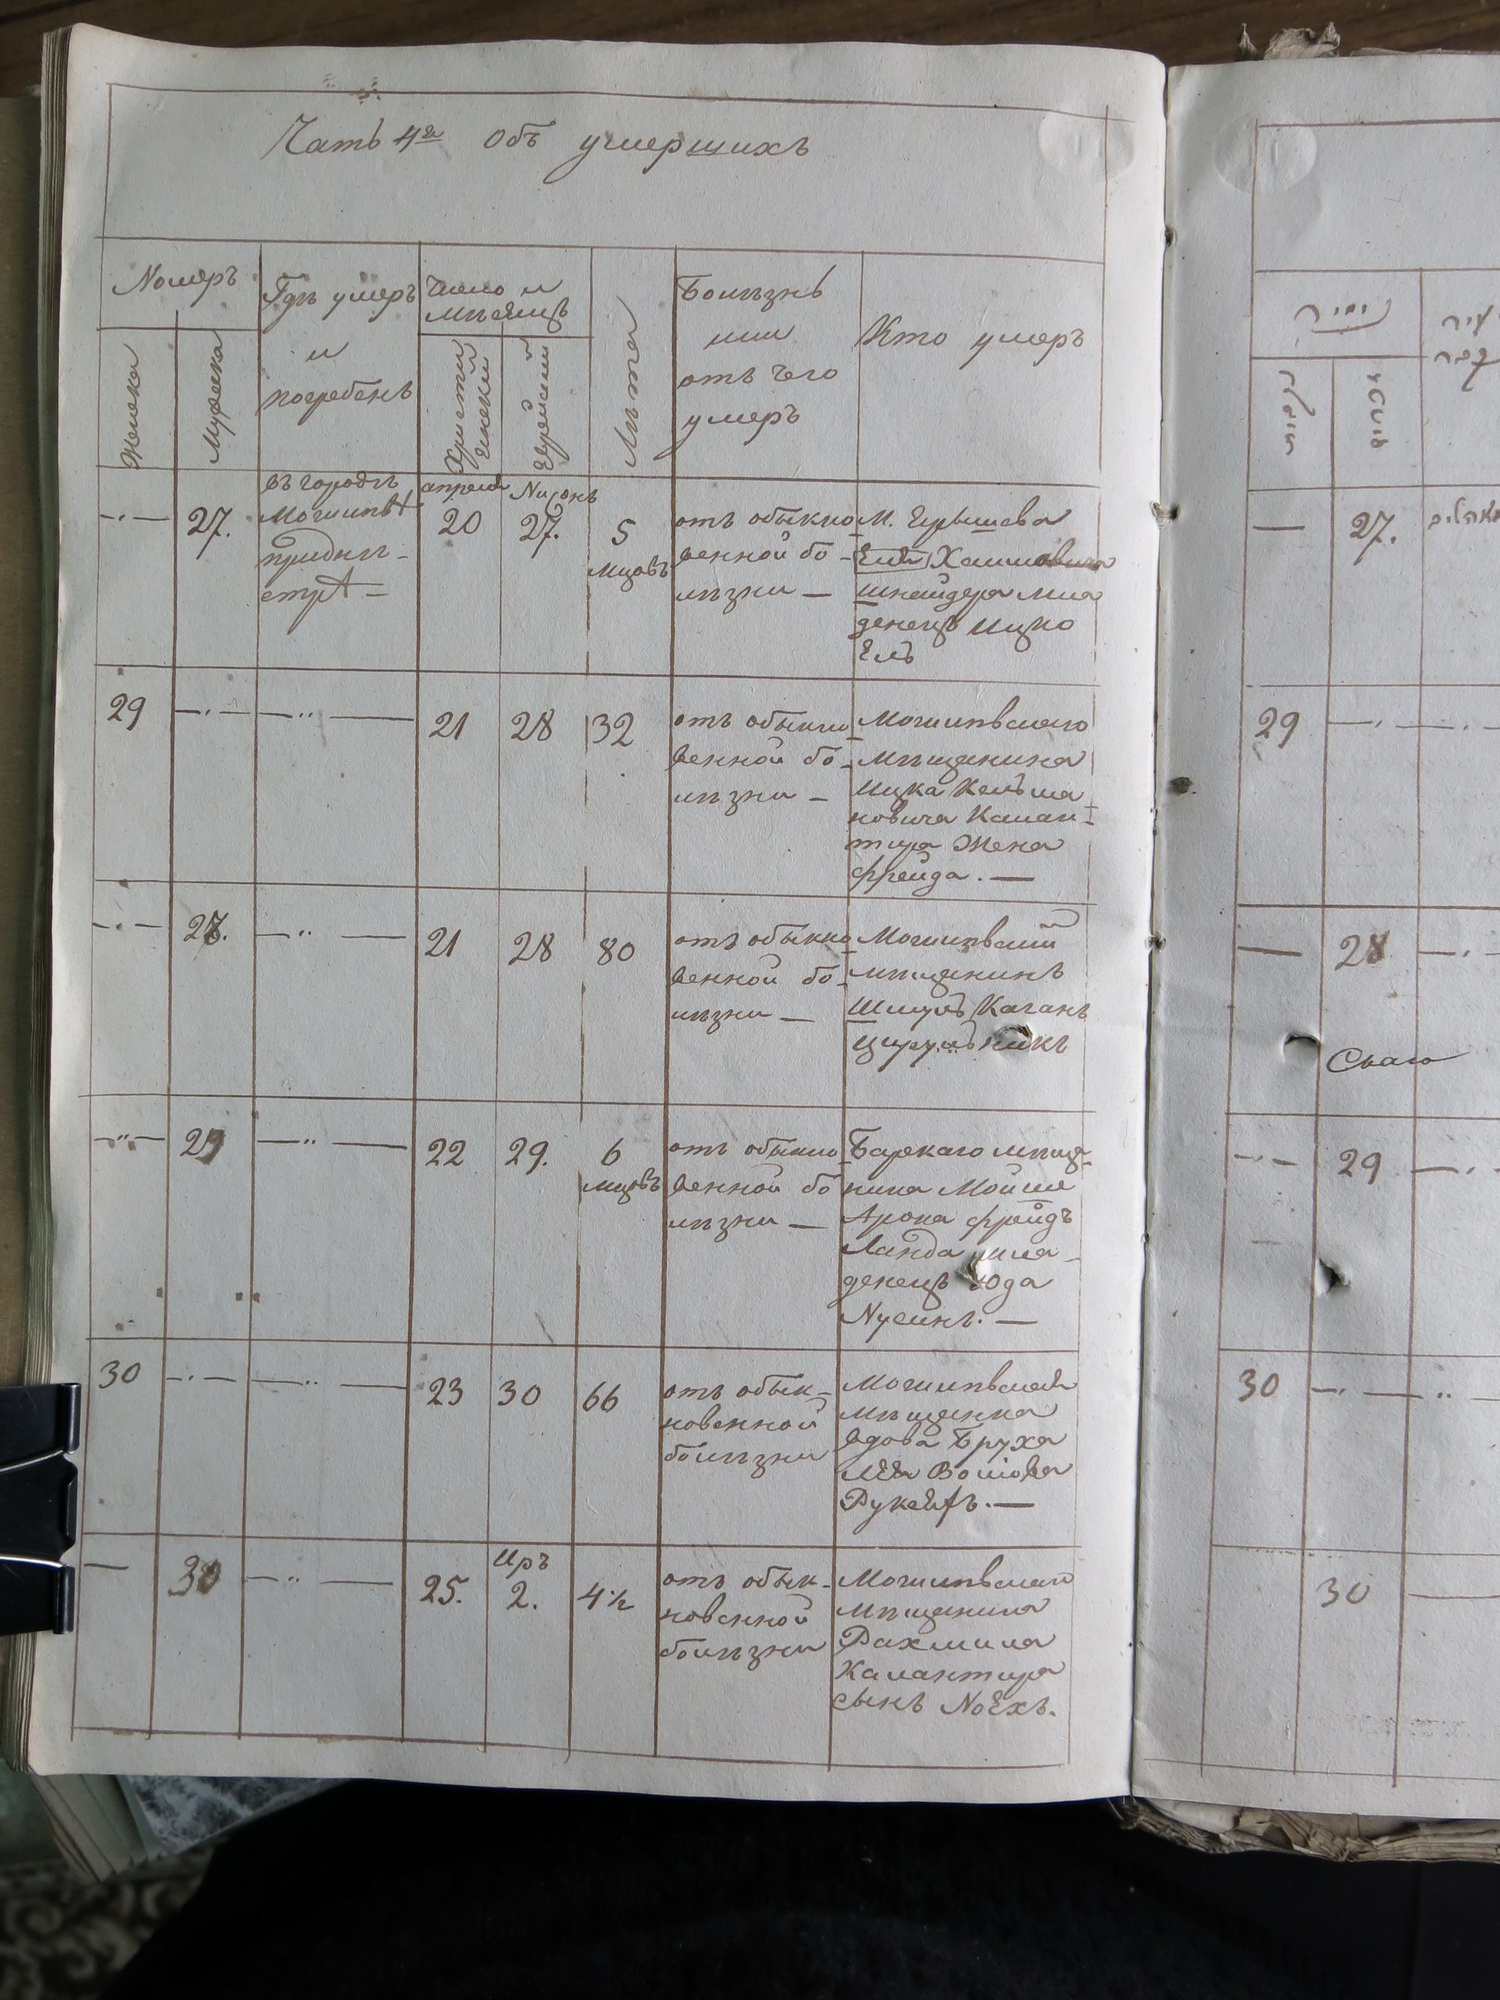 Часть 4я Объ умершихъ
Номеръ
Женска
Мужска
Гдѣ умеръ
и
погребенъ
Число и
мѣсяцъ
Христіанскій
Еврейскій
Лѣта
Болѣзнь
или
отъ чего
умеръ
Кто умеръ
— 27.
въ городѣ
Могилевѣ
приднѣ-
стрѣ —
апреля
20
Нисонъ
27.
5
мцовъ
отъ обыкно
венной бо-
лѣзни —
М. Гершева
Хаимовича
Шнайдера мла
денецъ Ицко
Ель
29 — — 21 28 32
отъ обыкно
венной бо-
лѣзни —
Могилевскаго
мѣщанина
Ицка Кельма
новича Калан-
тира Жена
Фрейда. —
— 28. — 21 28 80
отъ обыкно
венной бо-
лѣзни —
Могилевский
мѣщанинъ
Шмуль Каганъ
Цирульникъ
— 29 — 22 29. 6
мцовъ
отъ обыкно
венной бо
лѣзни —
Барскаго мѣща-
нина Мойше
Арона Фрейдъ
Ланда мла-
денецъ Юда
Нусинъ. —
30 — — 23 30 66
отъ обык-
новенной
болѣзни
Могилевская
мѣщанка
вдова Бруха
Лея
— 30 — 25.
Иръ
2.
4½
отъ обык-
новенной
болѣзни
Могилевскаго
мѣщанина
Рахмила
Калантира
сынъ Ноехъ.
— 27.
29 —
— 28 —
— 29 —
30 — —
30 —